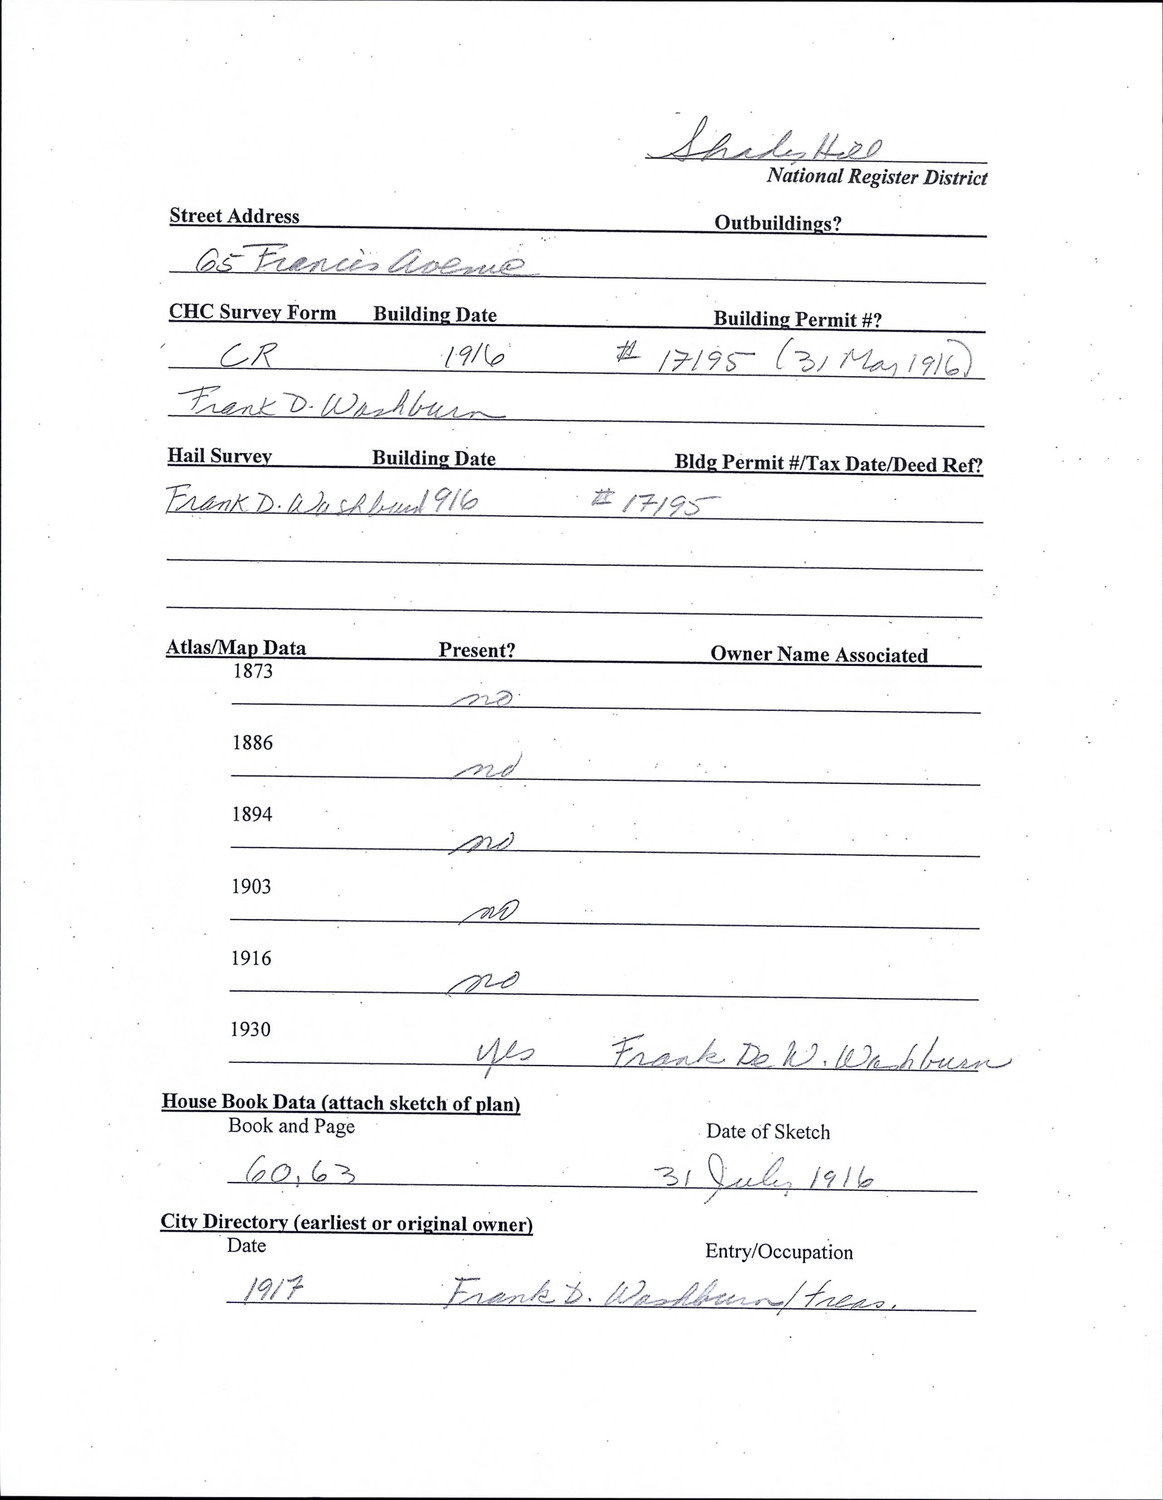 Shady Hill
National Register District
Street Address Outbuildings?
65 Francis Avenue
CHC Survey Form Building Date Building Permit #?
CR 1916 # 17195 (31 May 1916)
Frank D. Washburn
Hail Survey Building Date Bldg Permit #/Tax Date/Deed Ref?
Frank D. Washburn 1916 # 17195
Atlas/Map Data Present? Owner Name Associated
1873
no
1886
no
1894
no
1903
no
1916
no
1930
yes Frank De W. Washburn
House Book Data (attach sketch of plan)
Book and Page Date of Sketch
60,63 31 July 1916
City Directory (earliest or original owner)
Date Entry/Occupation
1917 Frank D. Washburn/treas.